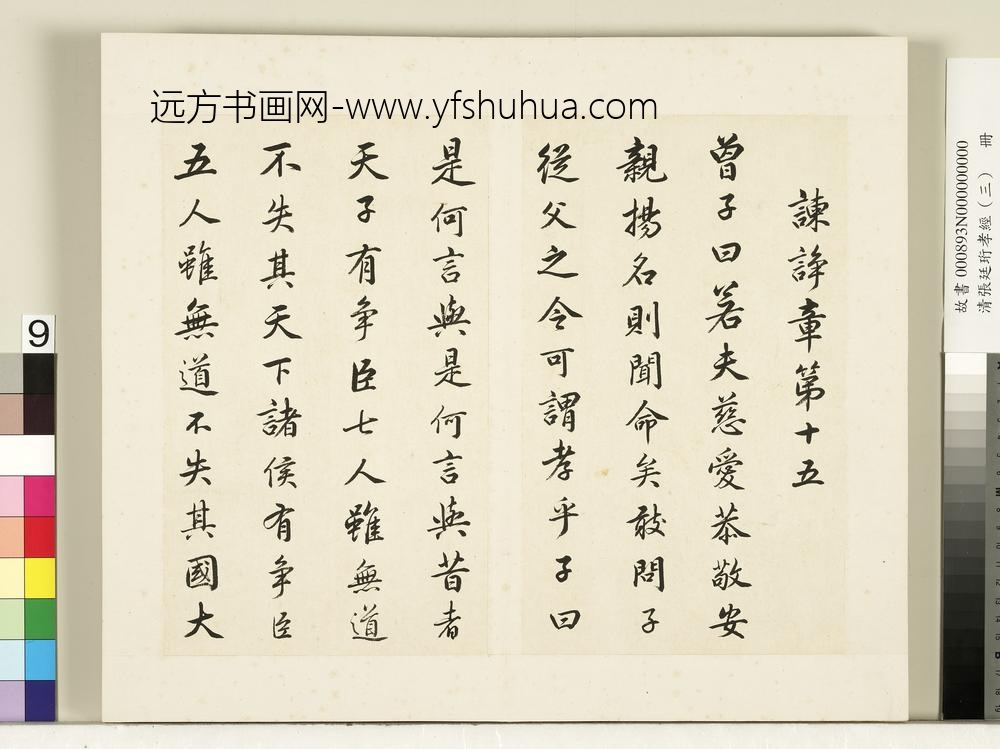 远方书画网-www.yfshuhua.com
諫諍章第十五
曾子曰若夫慈愛恭敬安
親揚名則聞命矣敢問子
從父之令可謂孝乎子曰
是何言與是何言與昔者
天子有爭臣七人雖無道
不失其天下諸侯有爭臣
五人雖無道不失其國大
故書000893N000000000
清張廷珩孝經(三) 冊
9